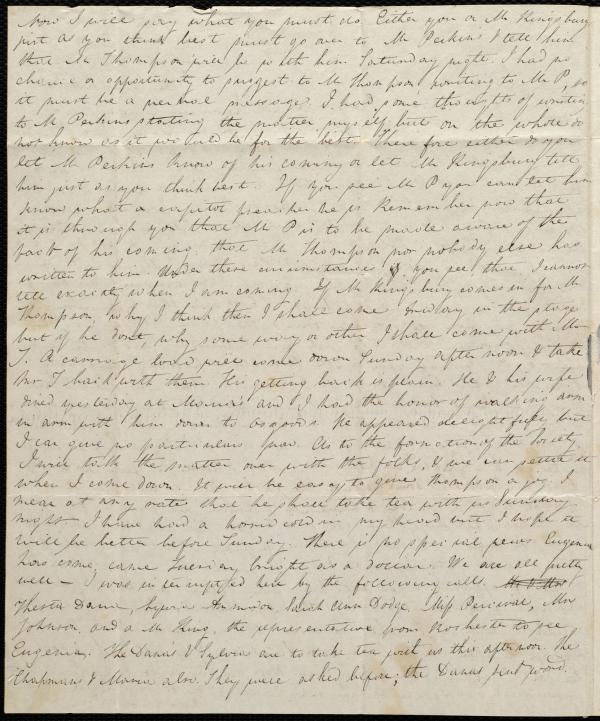 Now I will say what you must do. Either you or Mr Kingsbury
just as you think best must go over to Mr Perkins & tell him
that Mr Thompson will be with him Saturday night. I had no
chance or opportunity to suggest to Mr Thompson writing to Mr P, so
it must be a verbal message. I had some thoughts of writing
to Mr Perkins stating the matter myself but on the whole do
not know as it would be for the best. Therefore either do you
let Mr Perkins know of his coming or let Mr Kingsbury tell
him just as you think best. If you see Mr P you can let him
know what a capital preacher he is. Remember now that
it is through you that Mr P is to be made aware of the
fact of his coming, that Mr Thompson nor nobody else has
written to him. Under these circumstances, you see that I cannot
tell exactly when I am coming. If Mr Kingsbury comes in for Mr
Thompson, why I think then I shall come Friday in the stage
but if he dont, why some way or other I shall come with Mr
T. A carriage load will come down Sunday afternoon & take
Mr T back with them. His getting back is plain. He & his wife
dined yesterday at Maria's and I had the honor of walking arm
in arm with him down to Osgoods. He appeared delightfully but
I can give no particulars now. As to the formation of the Society
I will talk the matter over with the folks, & we can settle it
when I come down. It will be easy to give Thompson a jog. I
mean at any rate that he shall take tea with us Sunday
night. I have had a horrid cold in my head but I hope it
will be better before Sunday. There is no special news. Eugenia
has come, came Tuesday, bright as a dollar. We are all pretty
well — I was interrupted here by the following calls.
Thesta Dana, Sylvia Ammidon, Sarah Ann Dodge, Miss Percival, Mrs
Johnson, and a Mr King, the representative from Rochester to see
Eugenia. The Danas & Sylvia are to take tea with us this afternoon. The
Chapmans & Maria also. They were asked before; the Danas sent word.